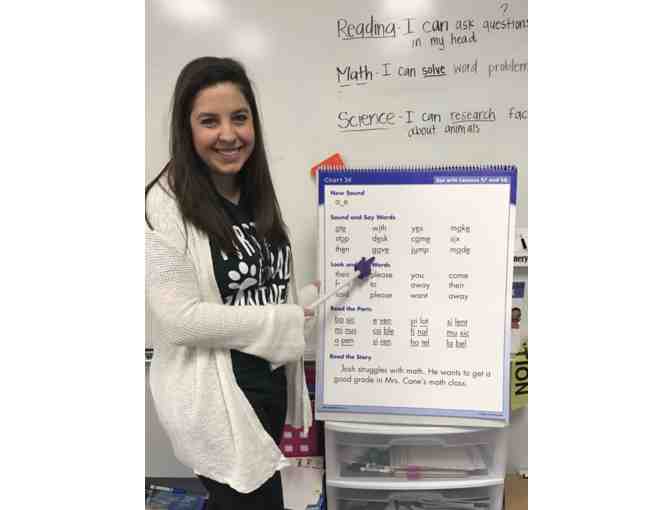 ?
Reading - I can ask questions
in my head
Math - I can solve word problem
Science - I can research fac
about animals
Chart 34
Use with Lessons 57 and 58
New Sound
a_e
Sound and Say Words
ate with yes make
stop desk came six
then gave jump made
Look and Words
their please you come
to away their
said please want away
Read the Parts
ba sic e ven pi lot si lent
mi nus ca ble fi nal mu sic
o pen si ren ho tel la bel
Read the Story
Josh struggles with math. He wants to get a
good grade in Mrs. Cane's math class.